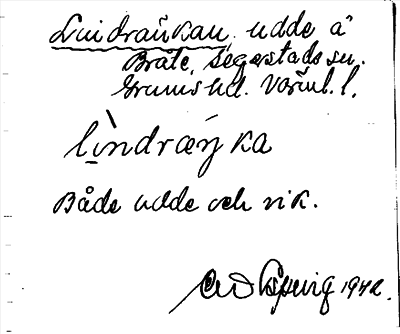 Lindränkan, udde å
Bråte, Segerstads sn.
Grums hd. Värml. l.
lìndræŋ́ka
Både udde och vik.
1942.